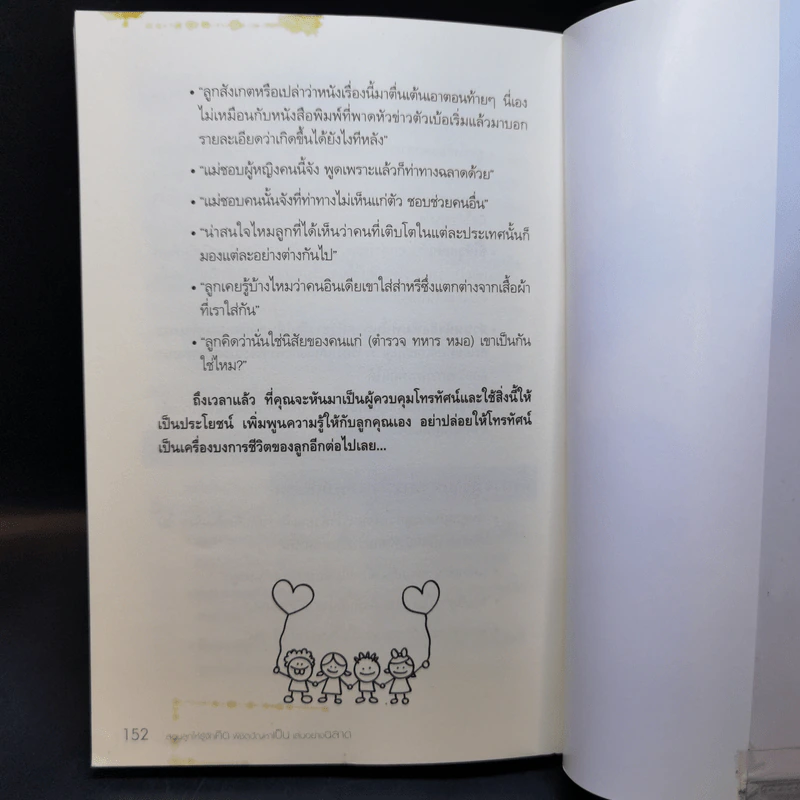 • “ลูกสังเกตหรือเปล่าว่าหนังเรื่องนี้มาตื่นเต้นเอาตอนท้ายๆ นี่เอง
ไม่เหมือนกับหนังสือพิมพ์ที่พาดหัวข่าวตัวเบ้อเริ่มแล้วมาบอก
รายละเอียดว่าเกิดขึ้นได้ยังไงทีหลัง”
• “แม่ชอบผู้หญิงคนนี้จัง พูดเพราะแล้วก็ท่าทางฉลาดด้วย”
• “แม่ชอบคนนั้นจังที่ท่าทางไม่เห็นแก่ตัว ชอบช่วยคนอื่น”
• “น่าสนใจไหมลูกที่ได้เห็นว่าคนที่เติบโตในแต่ละประเทศนั้นก็
มองแต่ละอย่างต่างกันไป”
• “ลูกเคยรู้บ้างไหมว่าคนอินเดียเขาใส่ส่าหรีซึ่งแตกต่างจากเสื้อผ้า
ที่เราใส่กัน”
• “ลูกคิดว่านั่นใช่นิสัยของคนแก่ (ตำรวจ ทหาร หมอ) เขาเป็นกัน
ใช่ไหม?”
ถึงเวลาแล้ว ที่คุณจะหันมาเป็นผู้ควบคุมโทรทัศน์และใช้สิ่งนี้ให้
เป็นประโยชน์ เพิ่มพูนความรู้ให้กับลูกคุณเอง อย่าปล่อยให้โทรทัศน์
เป็นเครื่องบงการชีวิตของลูกอีกต่อไปเลย...
152